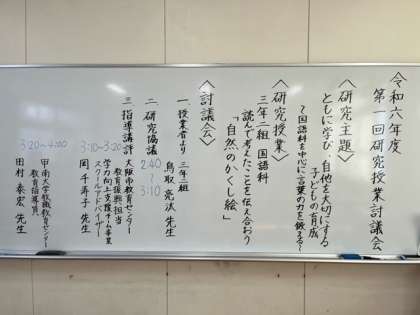 令和六年度
第一回研究授業討議会
〈研究主題〉
ともに学び、自他を大切にする
子どもの育成
〜国語科を中心に言葉の力を鍛える〜
〈研究授業〉
三年二組 国語科
読んで考えたことを伝え合おう
「自然のかくし絵」
〈討議会〉
一 授業者より 三年二組
鳥取 亮汰 先生
二 研究協議 2:40〜3:10
三 指導講評
3:10〜3:20
大阪市教育センター
教育振興担当
学力向上支援チーム事業
スクールアドバイザー
岡 千寿子 先生
3:20〜4:00
甲南大学教職教育センター
教育指導員
田村 泰宏 先生